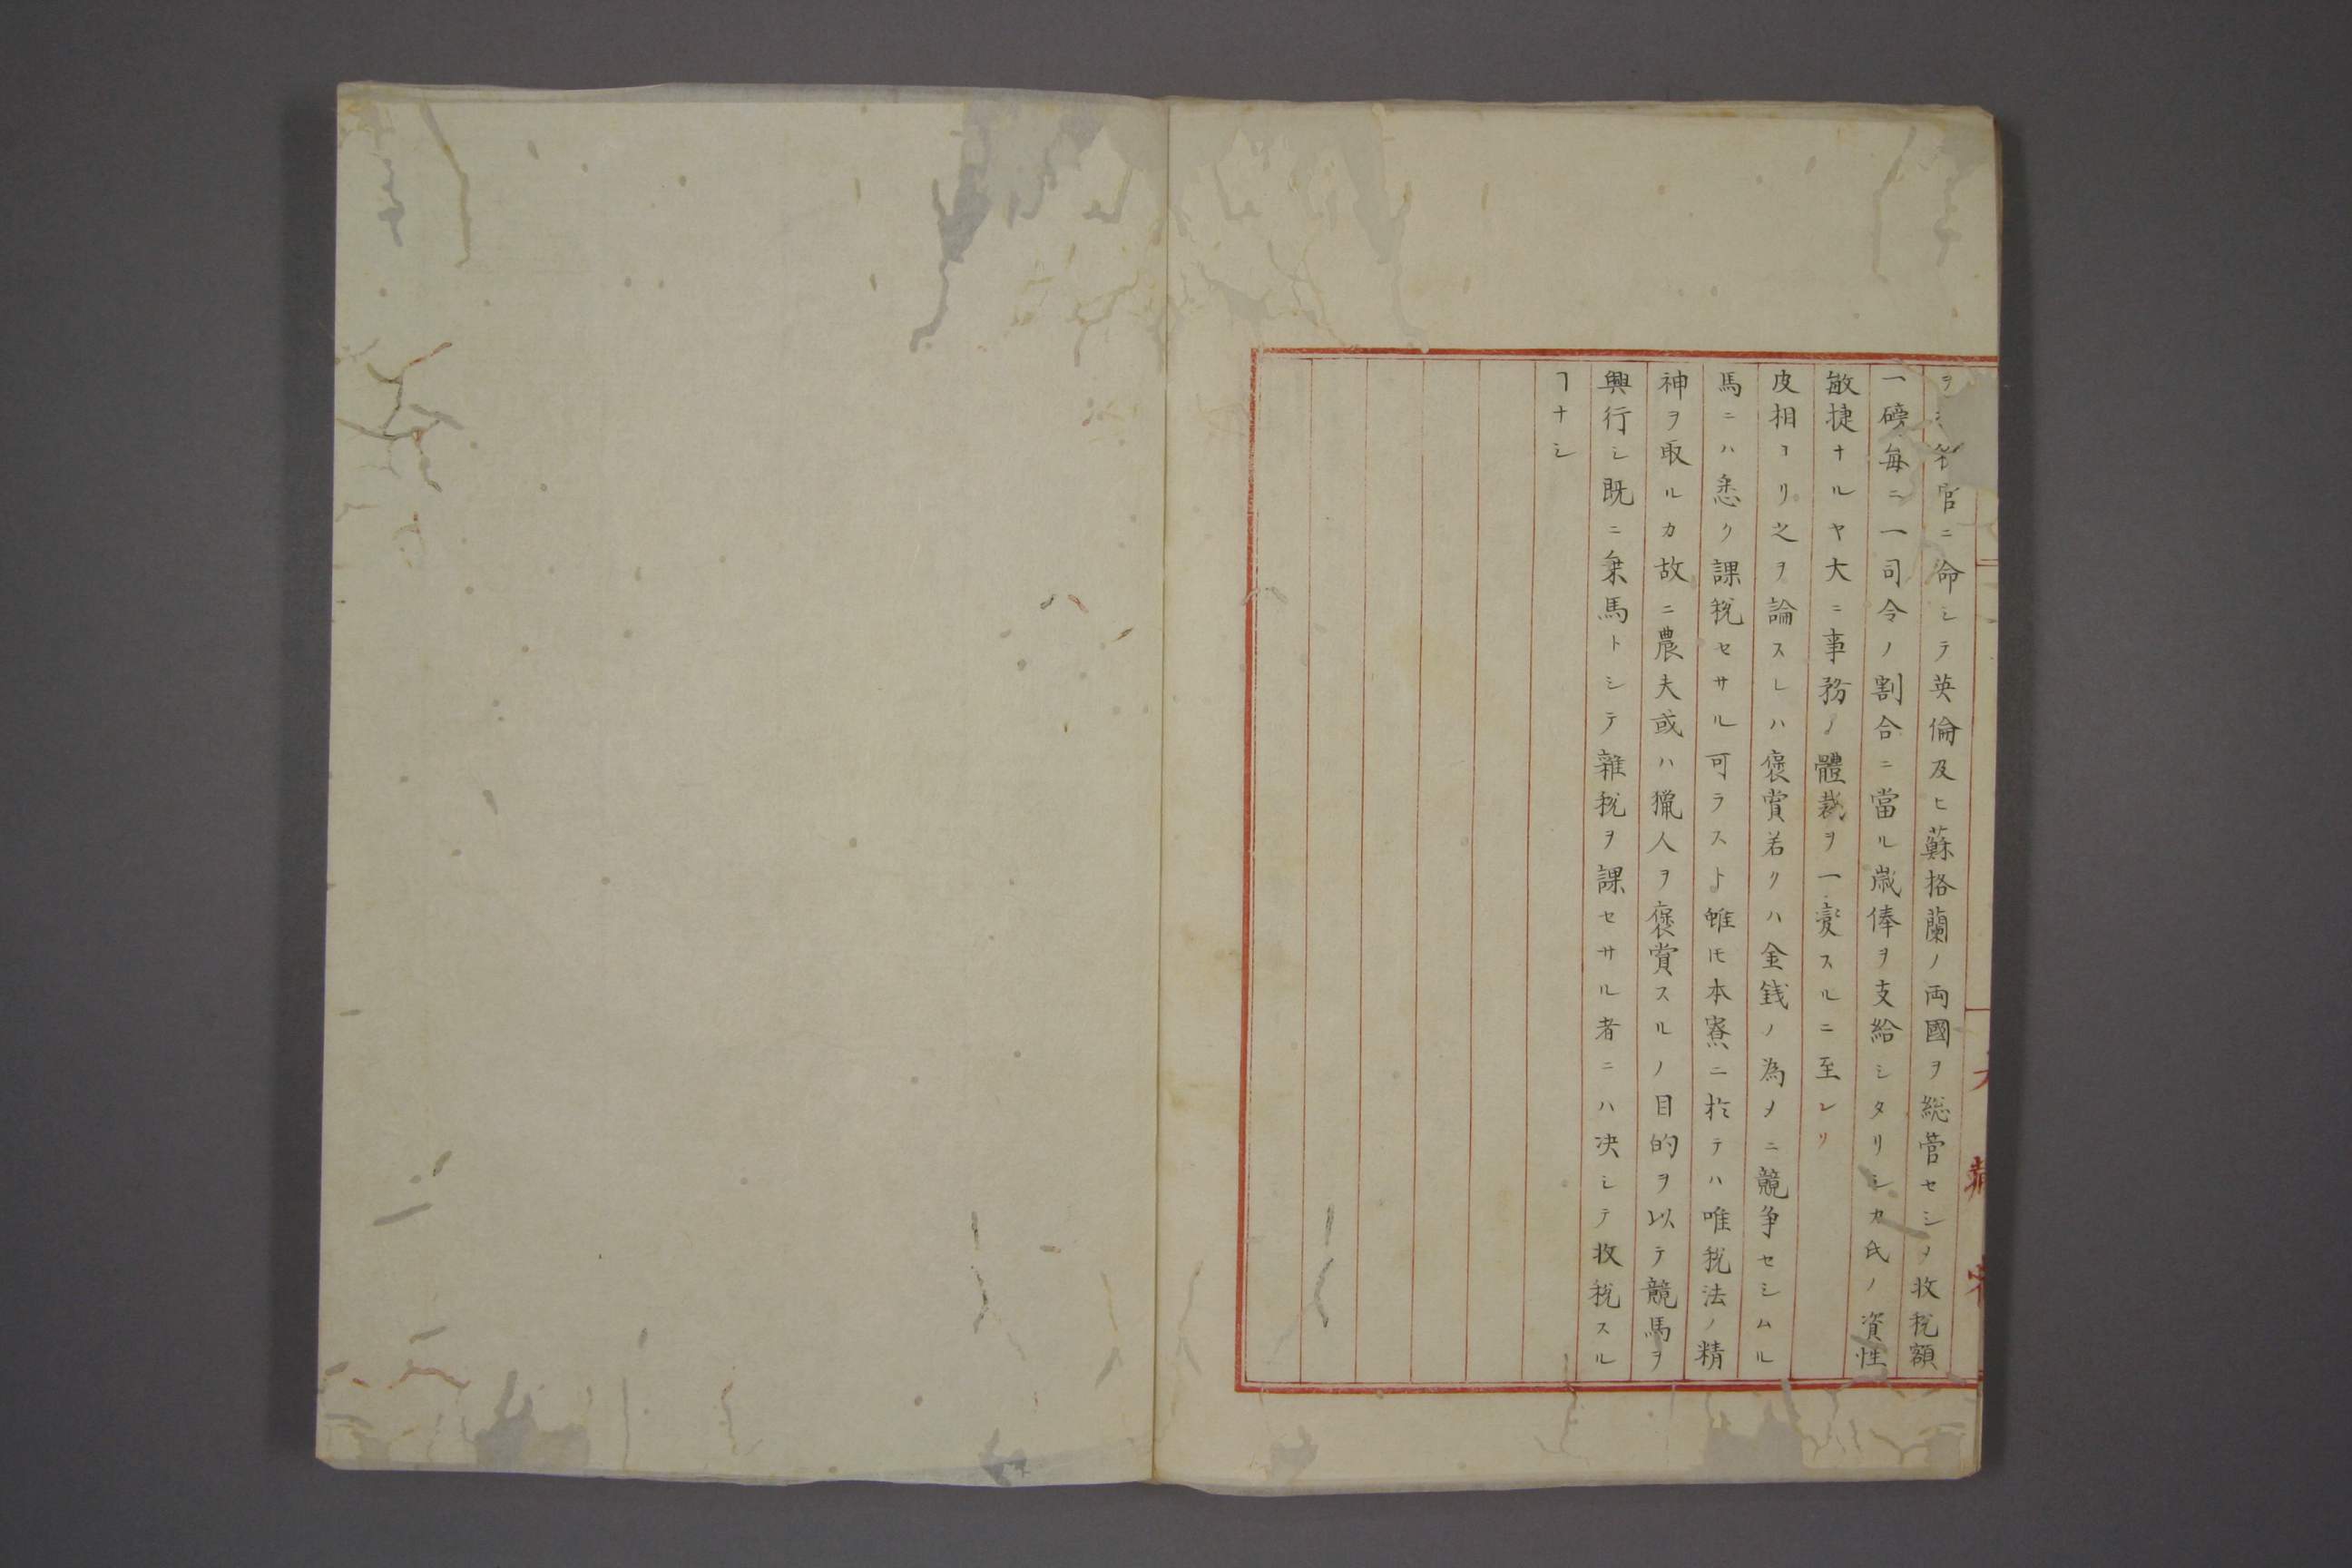 官ニ命シテ英倫及ヒ蘇格蘭ノ両國ヲ総管セシメ收税額
一磅毎ニ一司令ノ割合ニ當ル歳俸ヲ支給シタリシカ氏ノ資性
敏捷ナルヤ大ニ事務ノ體裁ヲ一変スルニ至レリ
皮相ヨリ之ヲ論スレハ褒賞若クハ金銭ノ為メニ競争セシムル
馬ニハ悉ク課税セサル可ラスト雖モ本寮ニ於テハ唯税法ノ精
神ヲ取ルカ故ニ農夫或ハ獵人ヲ褒賞スルノ目的ヲ以テ競馬ヲ
興行シ既ニ乗馬トシテ雜税ヲ課セサル者ニハ决シテ收税スル
ヿナシ